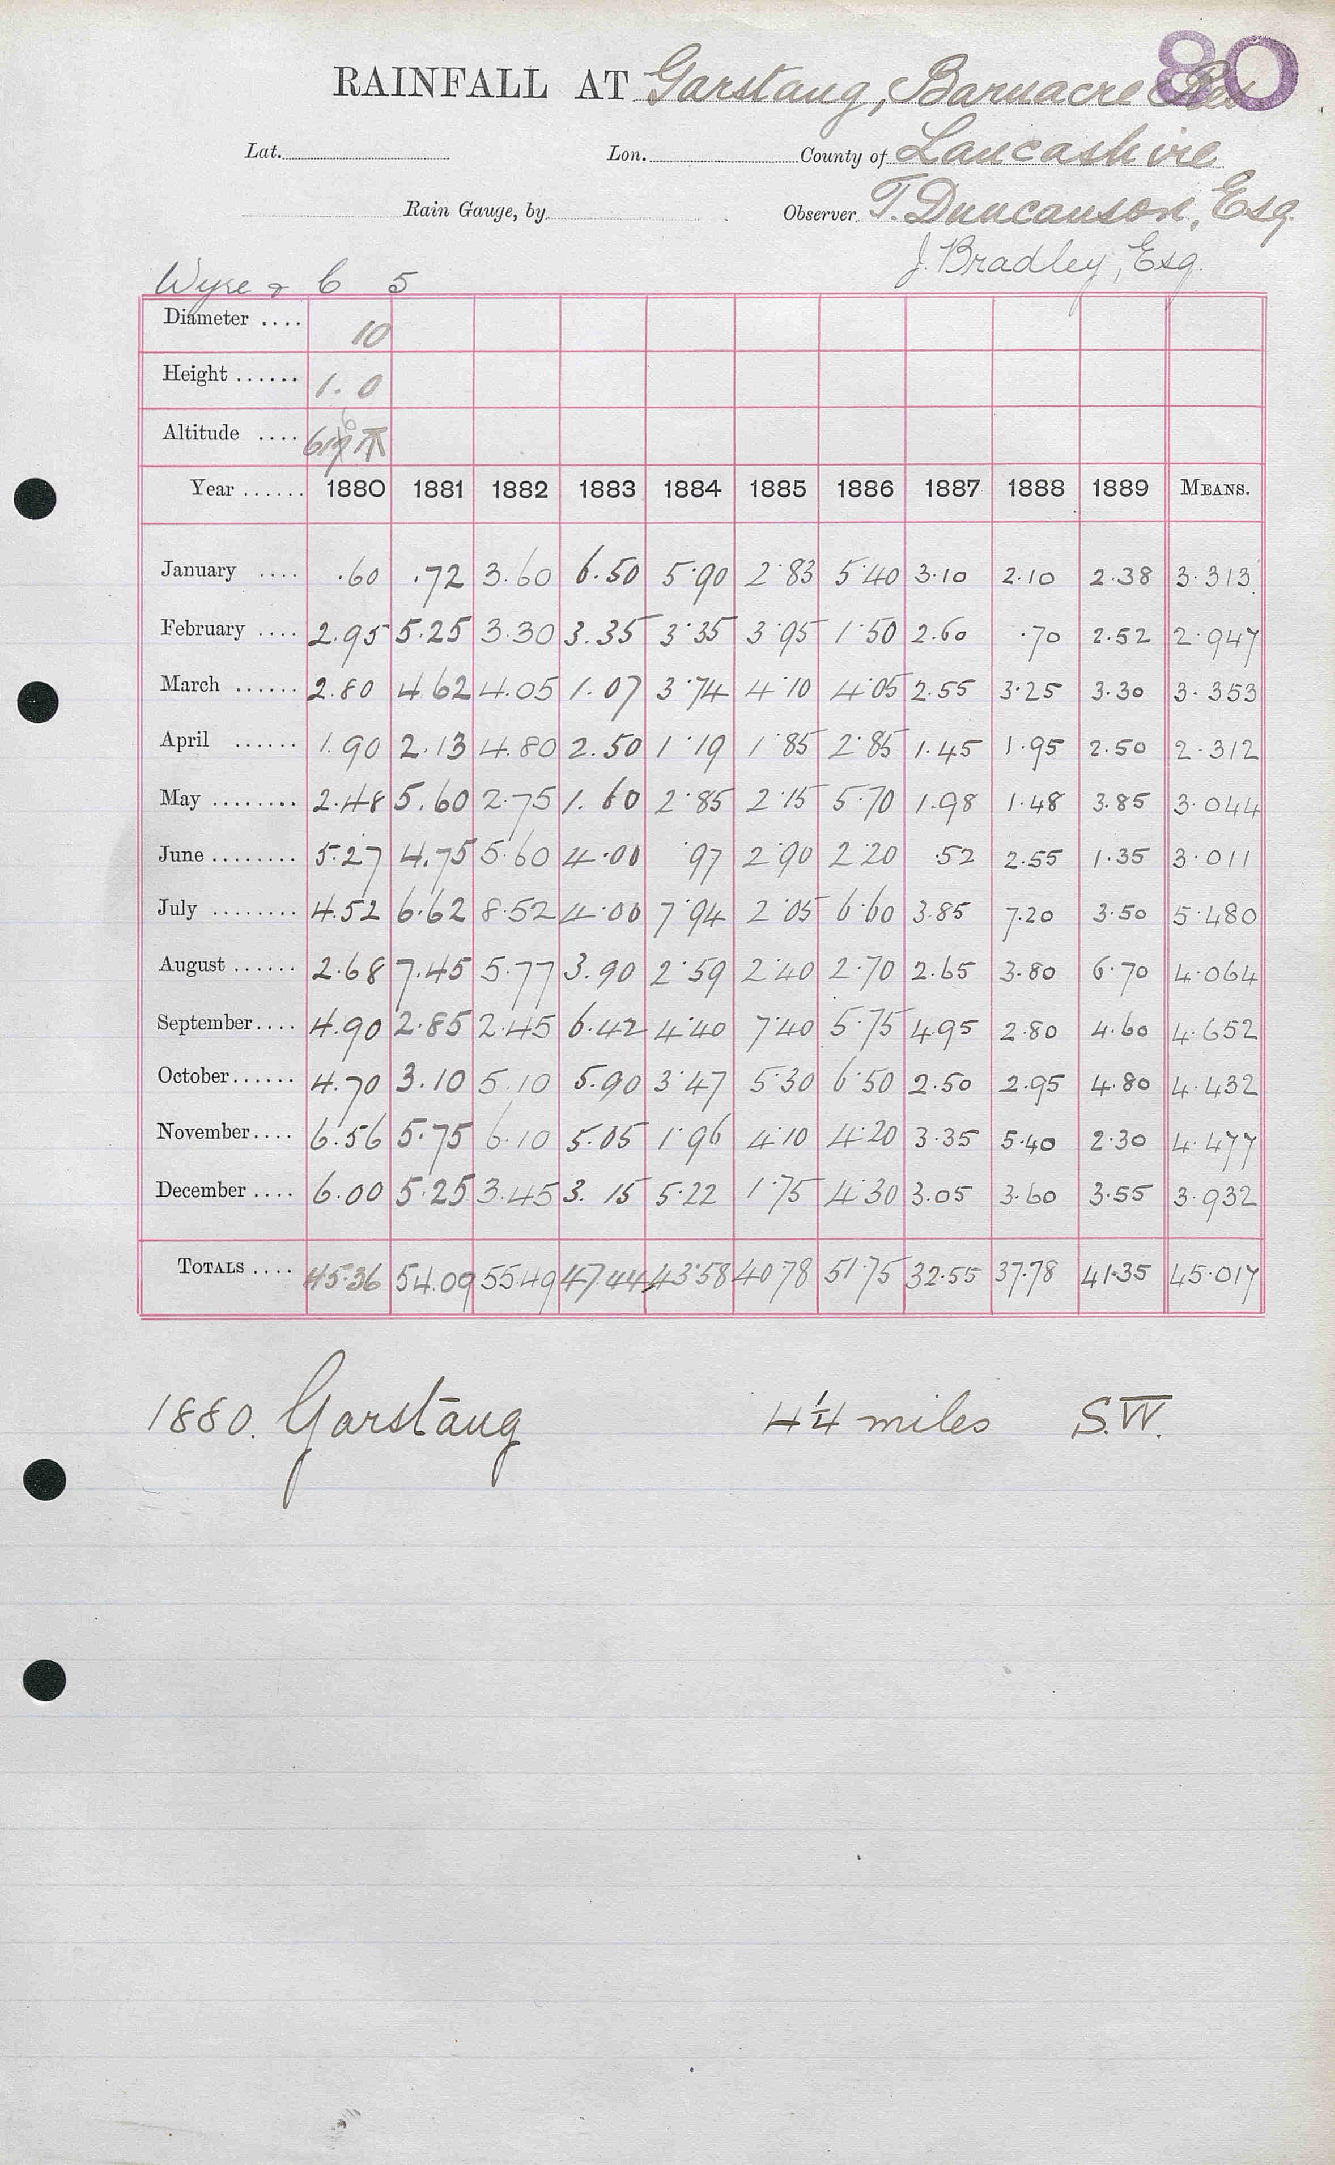 80
RAINFALL AT Garstang, Barnacre Res
Lat. Lon. County of Lancashire
Rain Gauge, by Observer T. Duncanson, Esq.
J. Bradley, Esq.
Wyre & C 5
Diameter .... 10
Height ...... 1.0
Altitude ....
Year ...... 1880 1881 1882 1883 1884 1885 1886 1887 1888 1889 MEANS.
January .... .60 .72 3.60 6.50 5.90 2.83 5.40 3.10 2.10 2.38 3.313
February .... 2.95 5.25 3.30 3.35 3.35 3.95 1.50 2.60 .70 2.52 2.947
March ...... 2.80 4.62 4.05 1.07 3.74 4.10 4.05 2.55 3.25 3.30 3.353
April ...... 1.90 2.13 4.80 2.50 1.19 1.85 2.85 1.45 1.95 2.50 2.312
May ........ 2.48 5.60 2.75 1.60 2.85 2.15 5.70 1.98 1.48 3.85 3.044
June ........ 5.27 4.75 5.60 4.00 .97 2.90 2.20 .52 2.55 1.35 3.011
July ........ 4.52 6.62 8.52 4.00 7.94 2.05 6.60 3.85 7.20 3.50 5.480
August ...... 2.68 7.45 5.77 3.90 2.59 2.40 2.70 2.65 3.80 6.70 4.064
September.... 4.90 2.85 2.45 6.42 4.40 7.40 5.75 4.95 2.80 4.60 4.652
October...... 4.70 3.10 5.10 5.90 3.47 5.30 6.50 2.50 2.95 4.80 4.432
November.... 6.56 5.75 6.10 5.05 1.96 4.10 4.20 3.35 5.40 2.30 4.477
December .... 6.00 5.25 3.45 3.15 5.22 1.75 4.30 3.05 3.60 3.55 3.932
TOTALS .... 45.36 54.09 55.49 47.44 43.58 40.78 51.75 32.55 37.78 41.35 45.017
1880. Garstang 4¼ miles S.W.